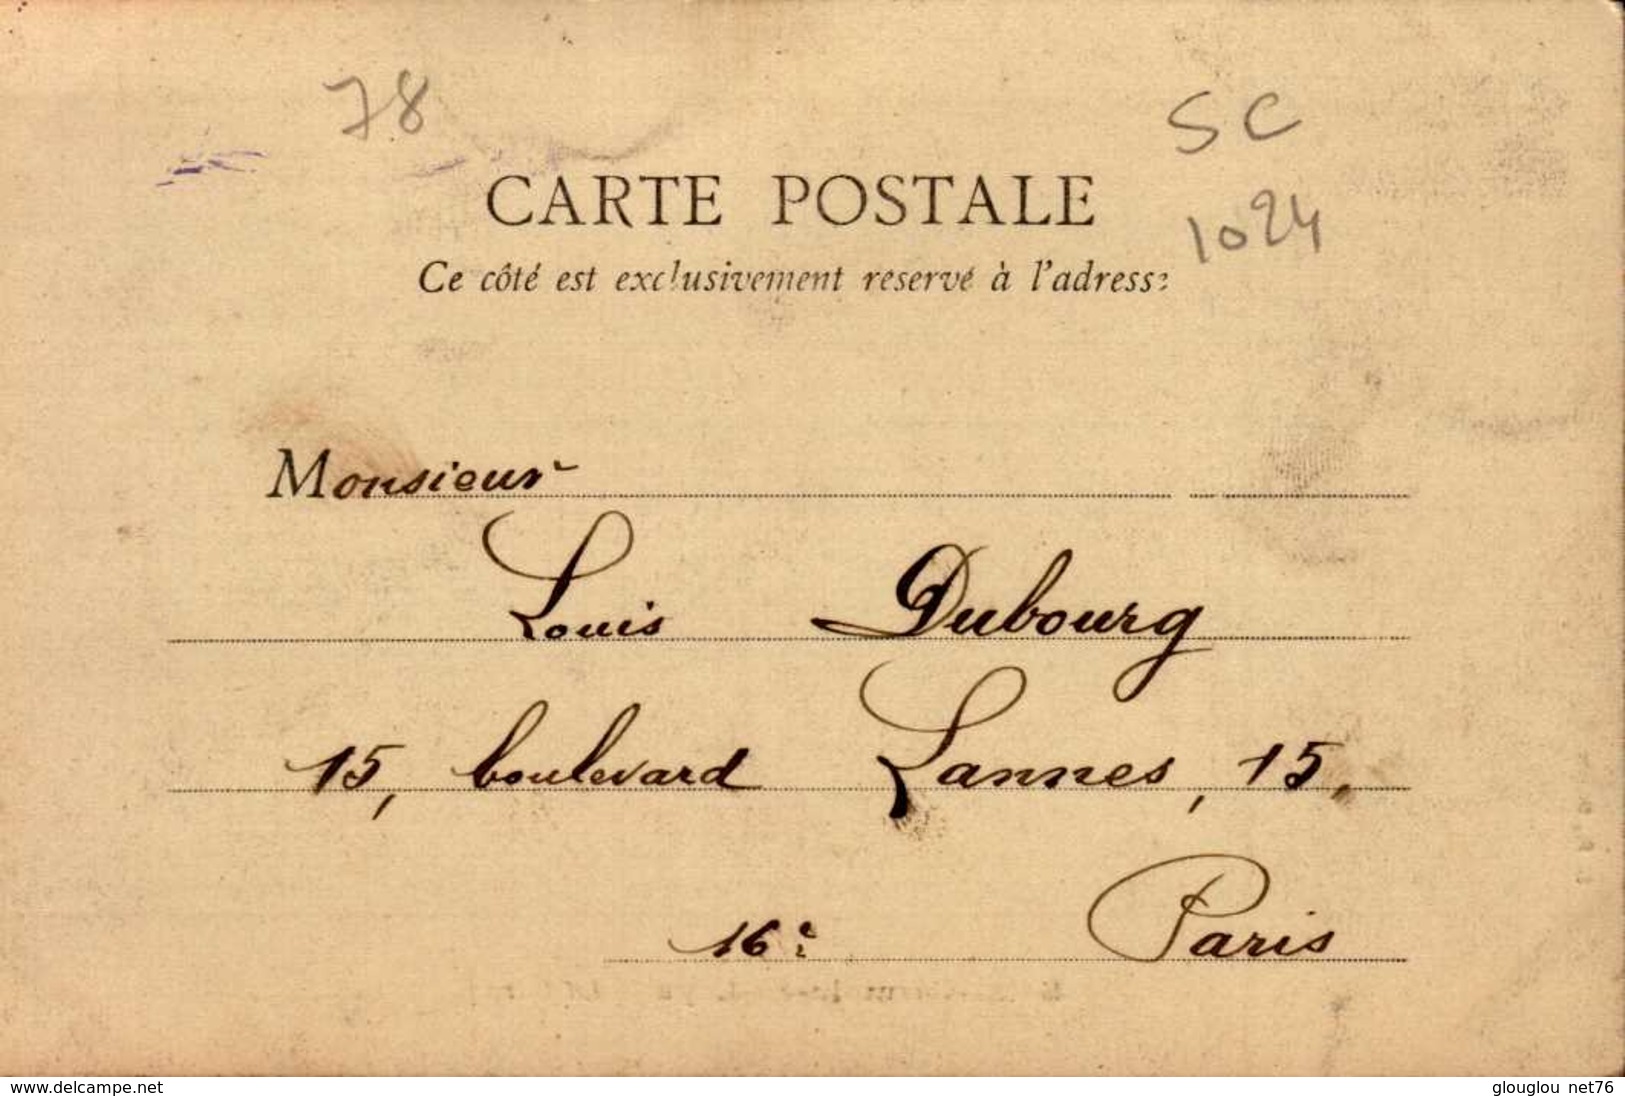 78
SC
1024
CARTE POSTALE
Ce côté est exclusivement réservé à l'adresse
Monsieur
Louis Dubourg
15, boulevard Lannes, 15,
16e Paris
www.delcampe.net
glouglou net76